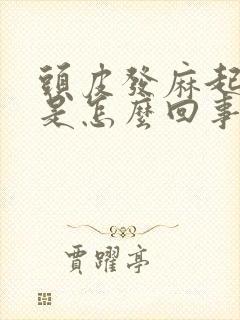 頭皮發麻起
是怎麼回事
賈躍亭